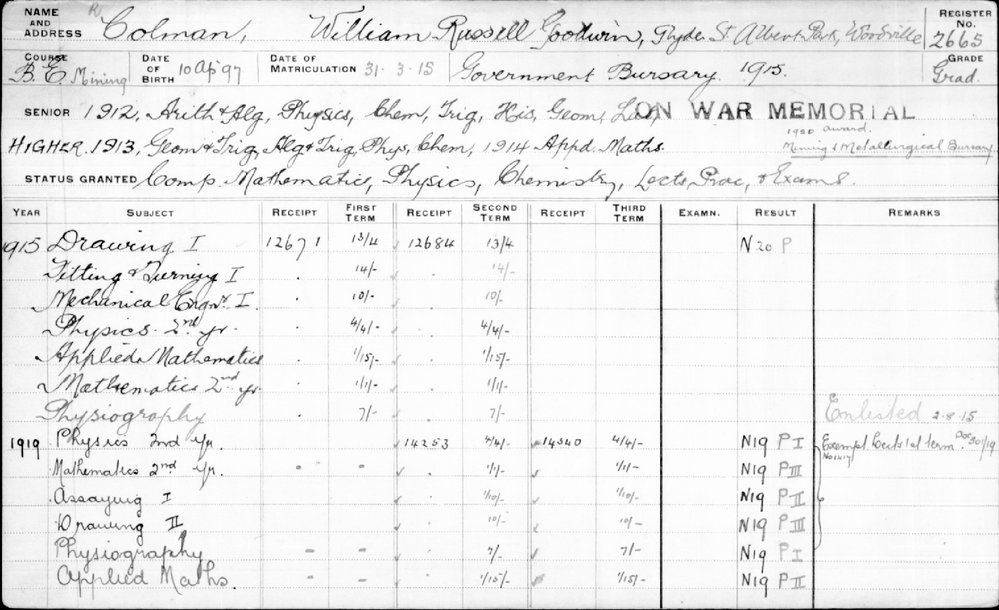 NAME AND ADDRESS Colman, William Russell Goodwin, Clyde St Albert Park, Woodville REGISTER No. 2665
COURSE B.E. Mining DATE OF BIRTH 10 Ap '97 DATE OF MATRICULATION 31-3-15 Government Bursary 1915. GRADE Grad.
SENIOR 1912, Arith & Alg, Physics, Chem, Trig, His, Geom, ON WAR MEMORIAL
1920 award.
HIGHER. 1913, Geom & Trig, Alg & Trig, Phys, Chem, 1914 Appd. Maths. Mining & Metallurgical Bursary
STATUS GRANTED Comp. Mathematics, Physics, Chemistry, Lects, Prac, & Exams.
YEAR SUBJECT RECEIPT FIRST TERM RECEIPT SECOND TERM RECEIPT THIRD TERM EXAMN. RESULT REMARKS
1915 Drawing I 12671 13/4 12684 13/4 N20 P
Fitting & Turning I 14/- 14/-
Mechanical Engn. I. 10/- 10/-
Physics 2nd yr. 4/4/- 4/4/-
Applied Mathematics 1/15/- 1/15/-
Mathematics 2nd yr. 1/1/- 1/1/-
Physiography 7/- 7/- Enlisted 2-8-15
1919 Physics 2nd Yr. 14253 4/4/- 14540 4/4/- N19 P I Exempt Lects 1st term 30/19
Mathematics 2nd Yr. - - 1/1/- 1/1/- N19 P III
Assaying I 1/10/- 1/10/- N19 P II
Drawing II 10/- 10/- N19 P III
Physiography - - 7/- 7/- N19 P I
Applied Maths. - - 1/15/- 1/15/- N19 P II